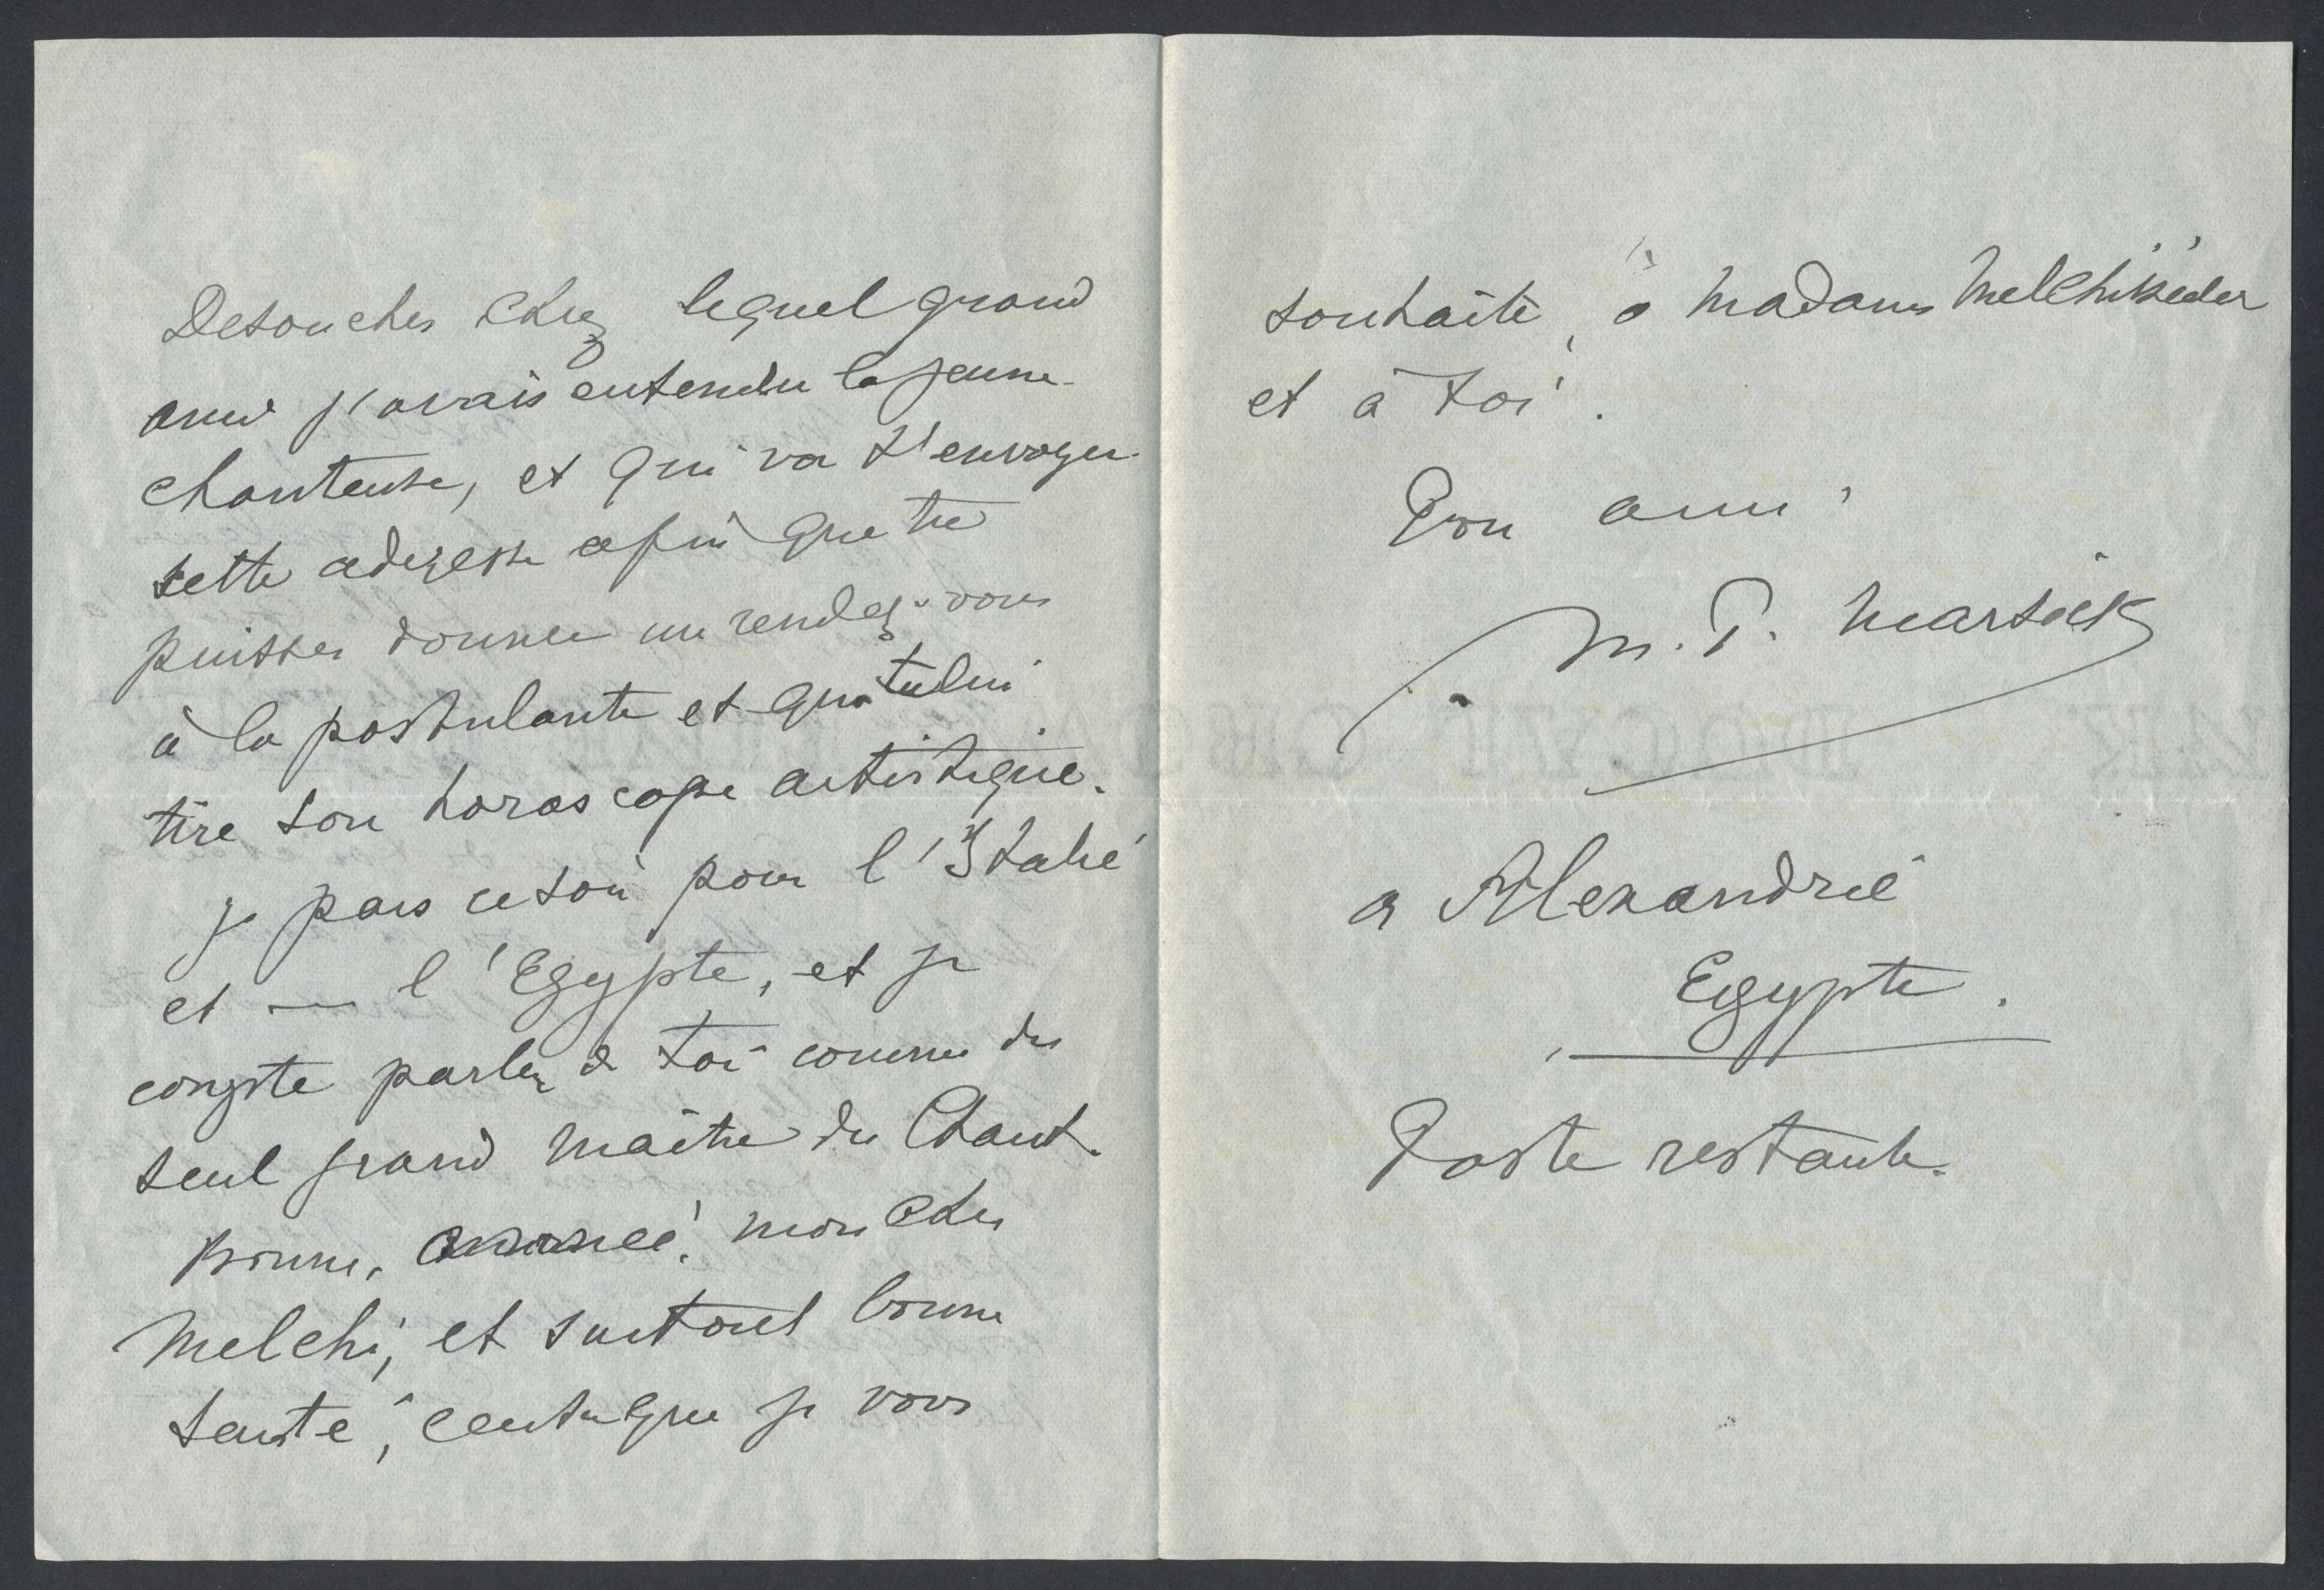 Detouches chez lequel grand
ami j'avais entendu la jeune
chanteuse, et qui va t'envoyer
cette adresse afin que tu
puisses donner un rendez-vous
à la postulante et que tu lui
tire son horoscope artistique.
Je pars ce soir pour l'Italie
et — l'Egypte, et je
compte parler de toi comme du
seul grand maître du Chant.
Bonne, année! mon cher
Melchi, et surtout bonne
santé, c'est ce que je vous
souhaite, à Madame Melchissedec
et à toi.
Ton ami
M. P. Marsick
a Alexandrie
Egypte.
Poste restante.